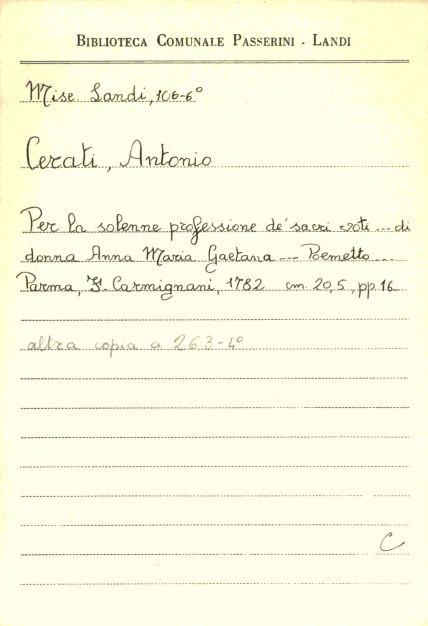 BIBLIOTECA COMUNALE PASSERINI - LANDI
Misc. Landi, 106-6°
Cerati, Antonio
Per la solenne professione de' sacri voti ... di
donna Anna Maria Gaetana --- Poemetto ...
Parma, F. Carmignani, 1782 cm. 20,5, pp. 16
altra copia a 263-4°
C